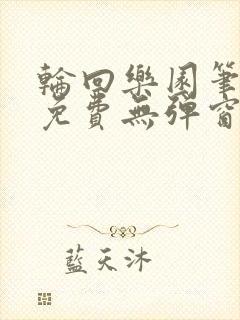 輪回樂園筆
免費無彈窗
藍天沐